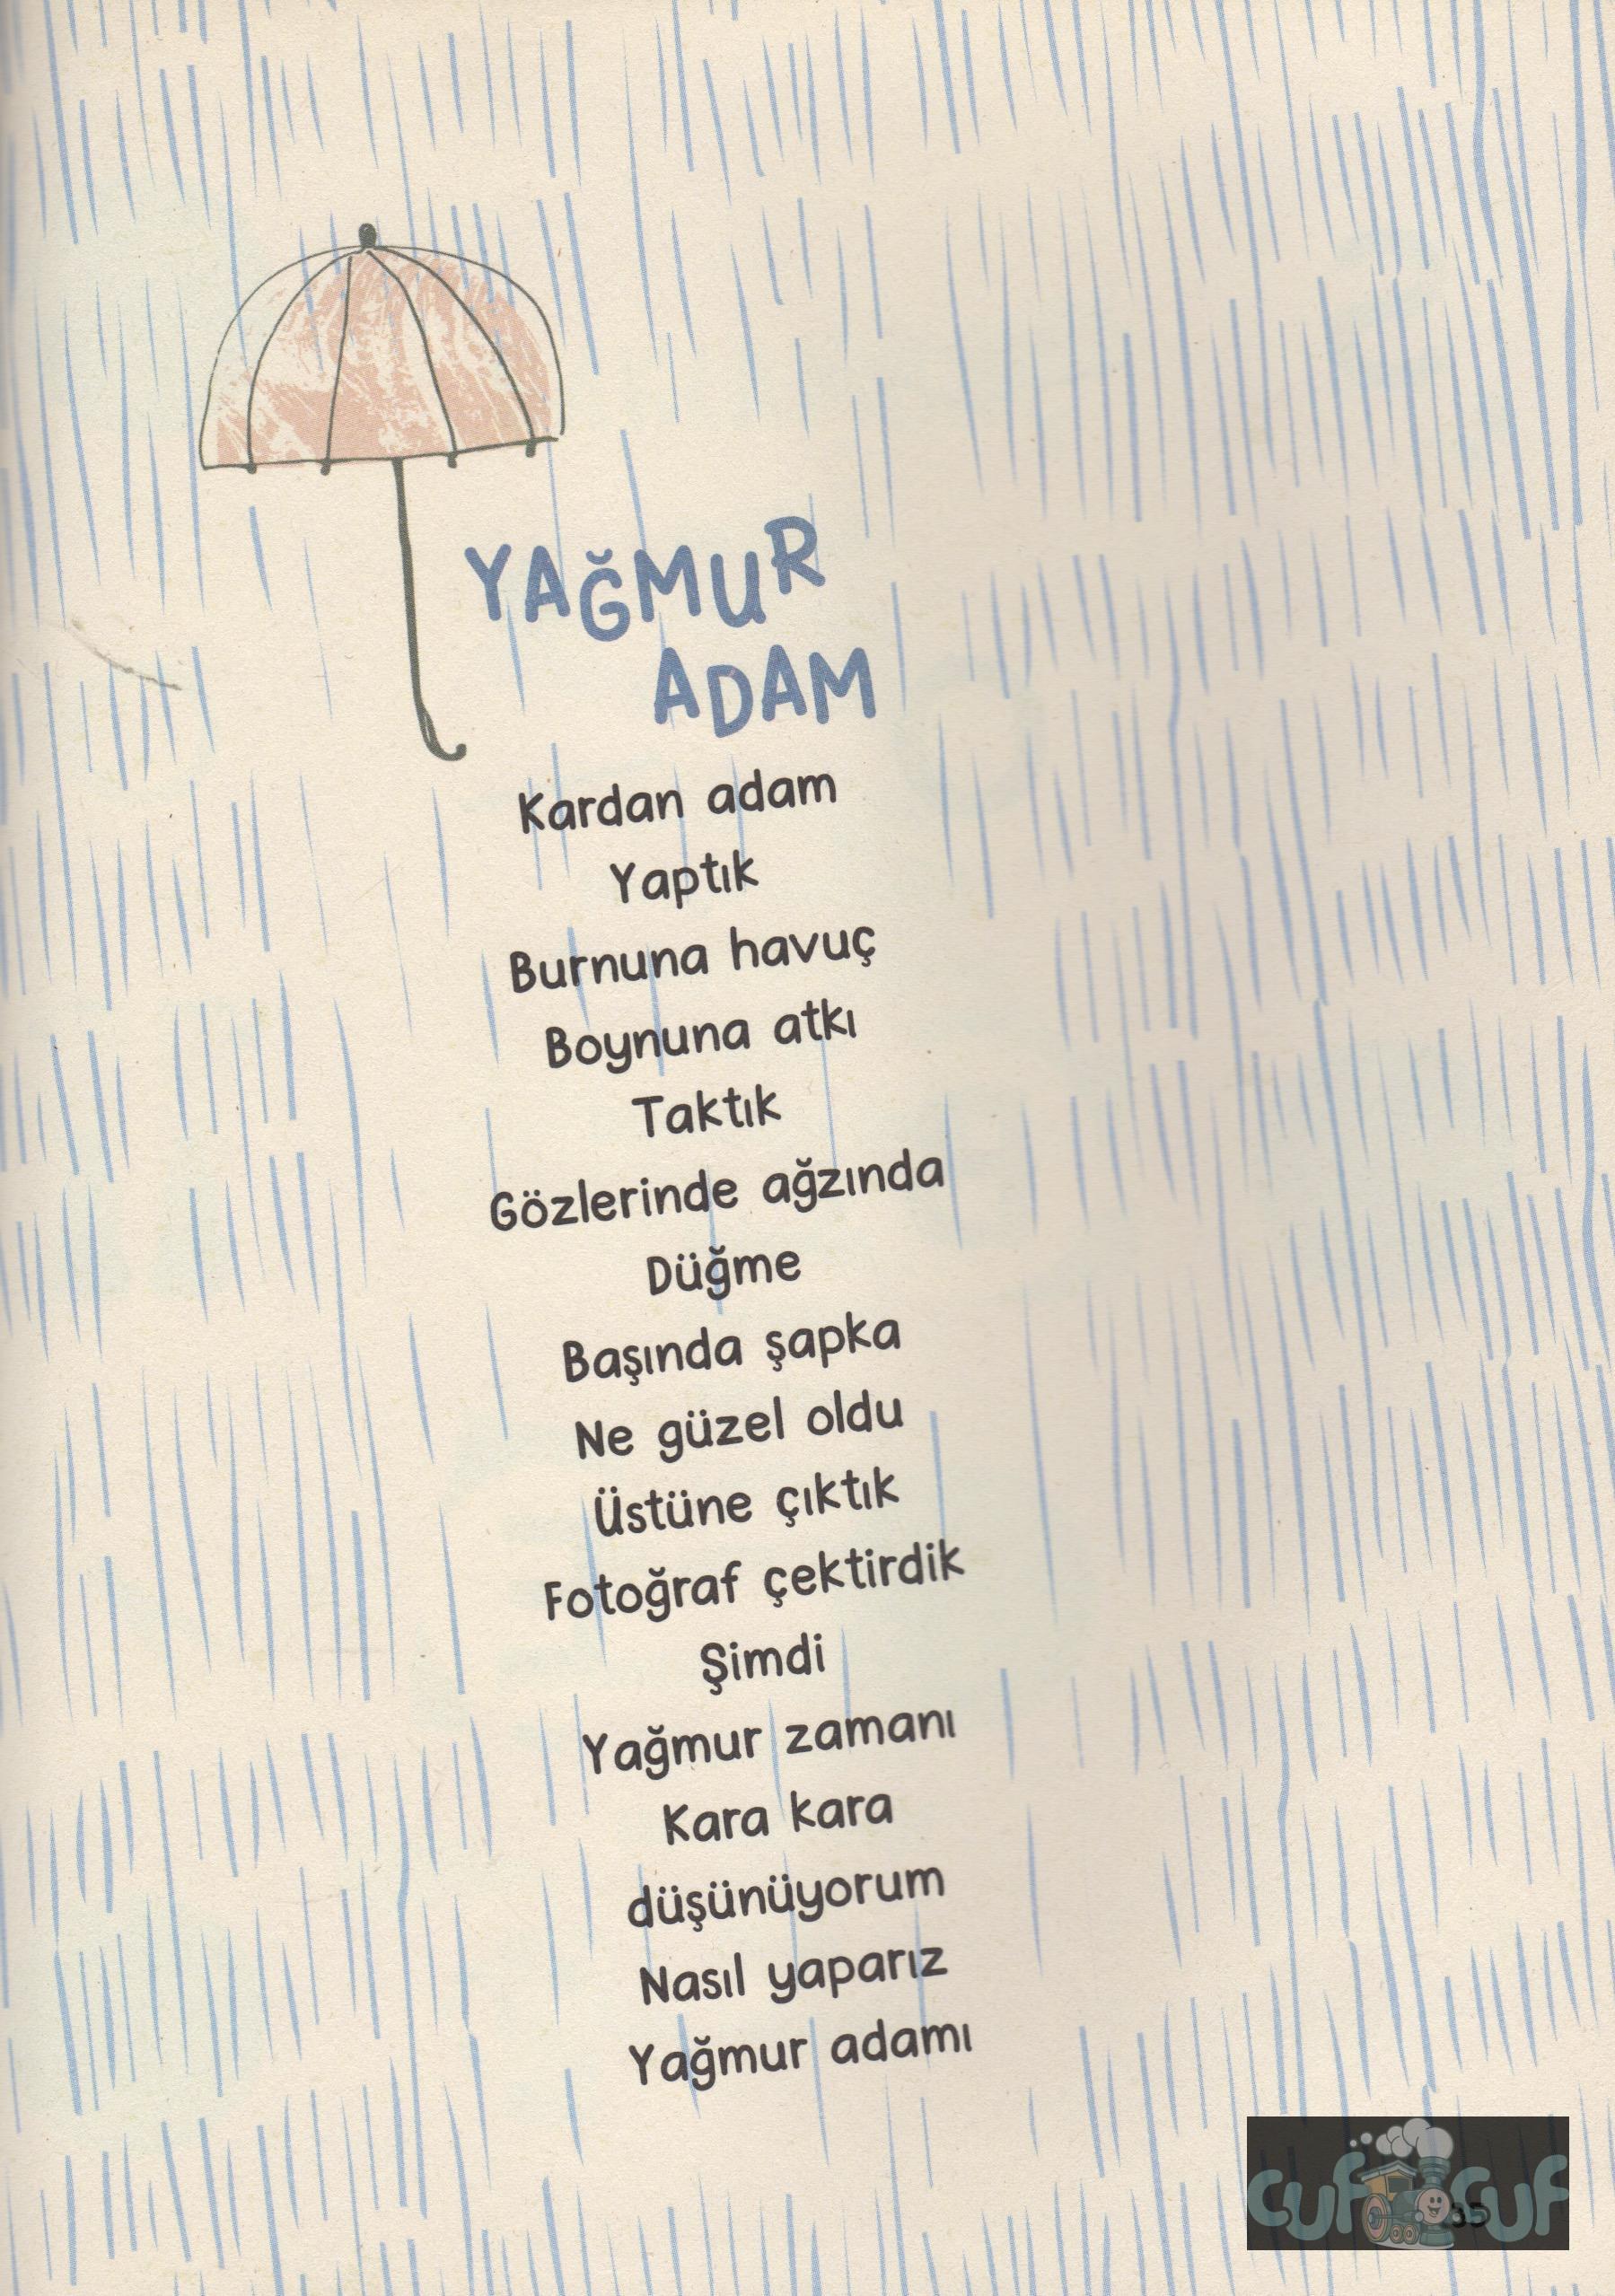 YAĞMUR
ADAM
Kardan adam
Yaptık
Burnuna havuç
Boynuna atkı
Taktık
Gözlerinde ağzında
Düğme
Başında şapka
Ne güzel oldu
Üstüne çıktık
Fotoğraf çektirdik
Şimdi
Yağmur zamanı
Kara kara
düşünüyorum
Nasıl yaparız
Yağmur adamı
cuf cuf
35